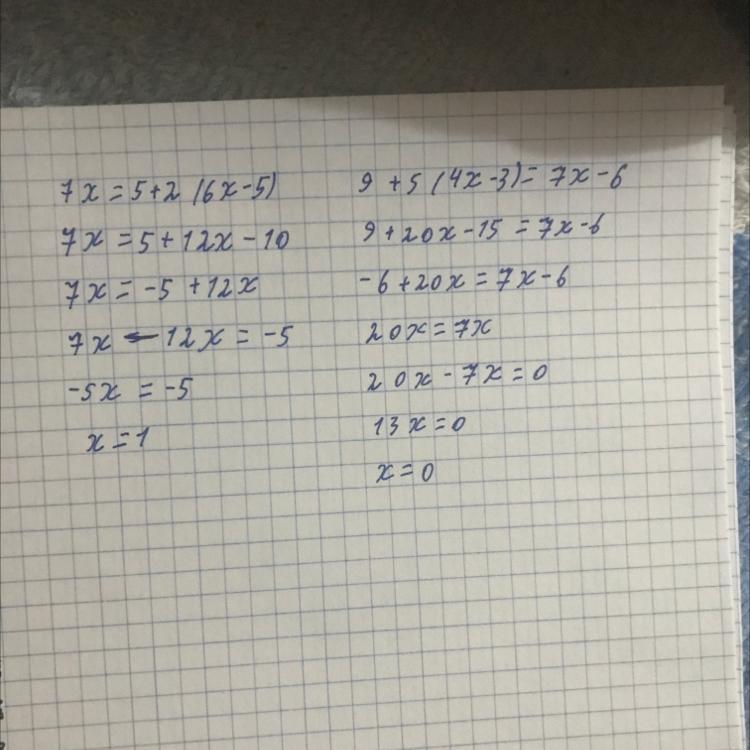 7x = 5+2 (6x-5)
7x = 5+12x-10
7x = -5 +12x
7x - 12x = -5
-5x = -5
x = 1
9 +5 (4x-3) = 7x-6
9+20x-15 = 7x-6
-6+20x = 7x-6
20x = 7x
20x - 7x = 0
13x = 0
x = 0